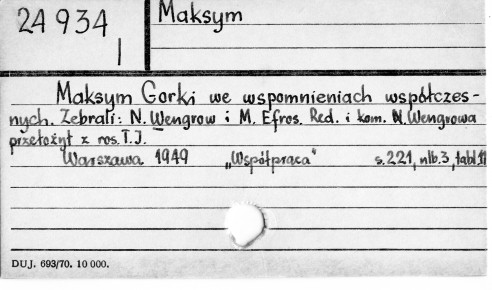 24934
I
Maksym
Maksym Gorki we wspomnieniach współczes-
nych. Zebrali: N. Wengrow i M. Efros. Red. i kom. N. Wengrowa
przełożył z ros. T.J.
Warszawa 1949 „Współpraca" s.221, nlb.3, tabl.11
DUJ. 693/70. 10 000.